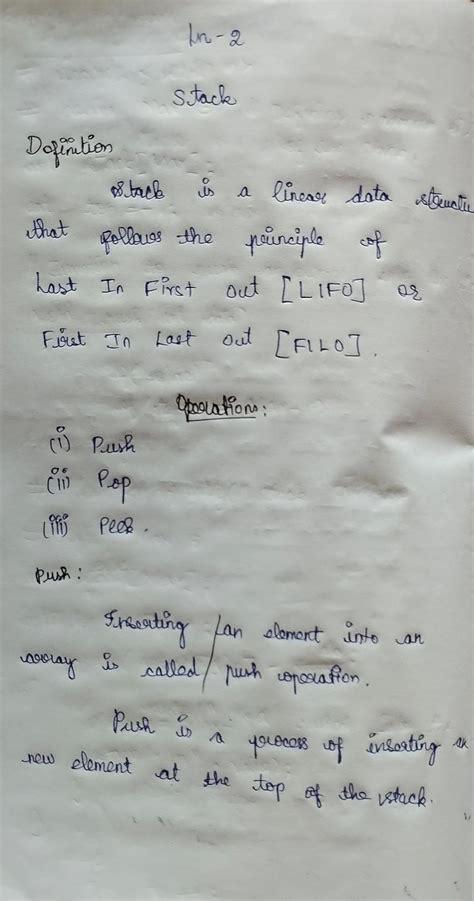 Ln-2
Stack
Definition
Stack is a linear data structu
that follows the principle of
Last In First out [LIFO] or
First In Last out [FILO].
Operations:
(i) Push
(ii) Pop
(iii) Peek.
Push:
Inserting an element into an
array is called push operation.
Push is a process of inserting a
new element at the top of the stack.